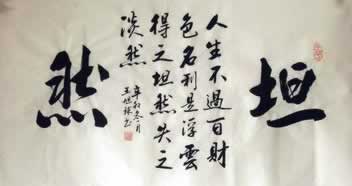 坦然
人生不過百財
色名利是浮雲
得之坦然失之
淡然
辛卯冬月
王旭林書